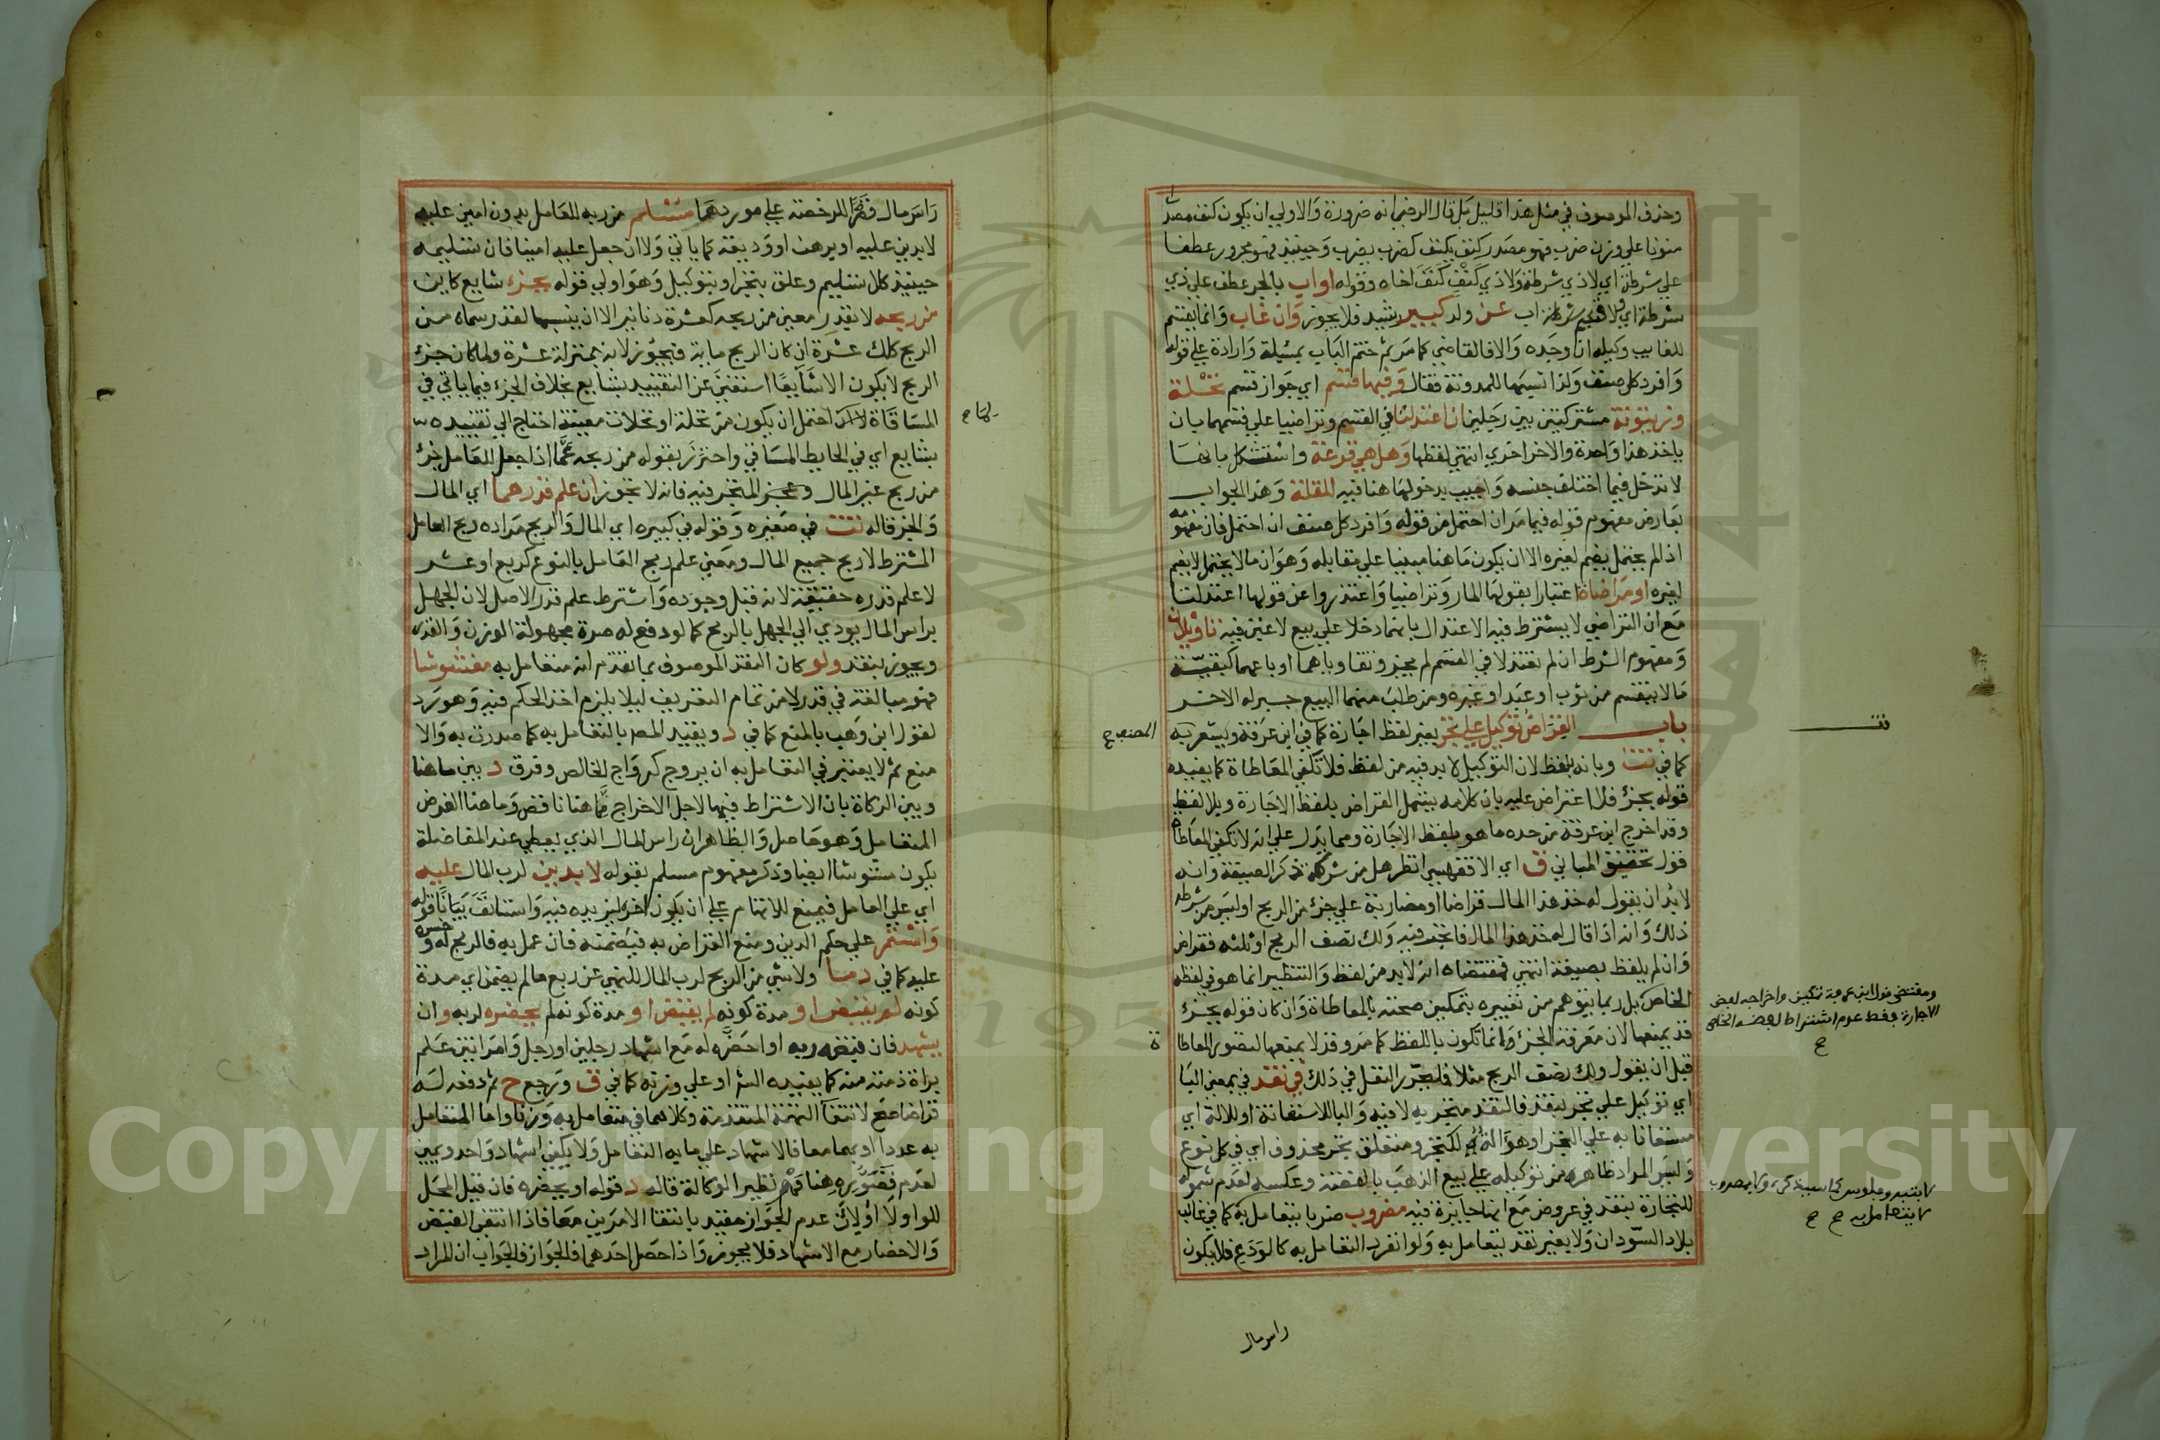 وحذف الموصوف في مثل هذا قليل بل قال الرضي انه ضرورة والاولي ان يكون كنف مصدرا
منونا علي وزن ضرب فهو مصدر كنف يكنف كضرب يضرب وحينيذ فهو مجرور عطفا
علي شرطة اي لاذي شرطة ولاذي كنف كنف اخاه وقوله اواب بالجر عطف علي ذي
شرطة اي ولا يقسم اب عن ولد كبير رشيد فلا يجوز وان غاب وانما يقسم
للغايب وكيله ان وجد والا فالقاضي كما مر ثم ختم الباب بمسيلة واردة علي قوله
وافرد كل صنف ولذا نسبها للمدونة فقال وفيها قسم اي جواز قسم نخلة
وزيتونة مشتركتين بين رجلين ان اعتدلتا في القسم وتراضيا علي قسمهما بان
ياخذ هذا واحدة والاخر اخري انتهي لفظها وهل هي قرعة واستشكل بانها
لا تدخل فيما اختلف جنسه واجيب بدخولها هنا فيه للقلة وهذا الجواب
يعارض مفهوم قوله فيما مر ان احتمل من قوله وافرد كل صنف ان احتمل فان مفهومه
اذا لم يحتمل يضم لغيره الا ان يكون ما هنا مبنيا علي مقابله وهو ان ما لا يحتمل لا يضم
لغيره او مراضاة اعتبارا بقولها المار وتراضيا واعتذروا عن قولها اعتدلتا
مع ان التراضي لا يشترط فيه الاعتدال بانهما دخلا علي بيع لا غبن فيه تاويلان
ومفهوم الشرط ان لم تعتدلا في القسم لم يجز وتقاوياهما او باعهما كبقية
ما لا ينقسم من ثوب او عبد او غيره ومن طلب منهما البيع جبر له الاخر
باب القراض توكيل علي تجر بغير لفظ اجارة كما في ابن عرفة ويشعر به
كما في تت وبانه بلفظ لان التوكيل لا بد فيه من لفظ فلا تكفي المعاطاة كما يفيده
قوله بجزء فلا اعتراض عليه بان كلامه يشمل القراض بلفظ الاجارة وبلا لفظ
وقد اخرج ابن عرفة من حده ما هو بلفظ الاجارة ومما يدل علي انه لا تكفي المعاطاة
قول تحقيق المباني ق اي الاقفهسي انظر هل من شرطه ذكر الصيغة وانه
لا بد ان يقول له خذ هذا المال قراضا او مضاربة علي جزء من الربح او ليس من شرطه
ذلك وانه اذا قال له خذ هذا المال فاتجر فيه ولك نصف الربح او ثلثه فقراض
وان لم يلفظ بصيغة انتهي فمقتضاه انه لا بد من لفظ والتنظير انما هو في لفظه
الخاص بل ربما يتوهم من تعبيره بتمكين صحته بالمعاطاة وان كان قوله بجزء
قد يمنعها لان معرفة الجزء وانما تكون باللفظ كما مر وقد لا يمنعها لتصور المعاطاة
قبل ان يقول ولك نصف الربح مثلا فليحرر النقل في ذلك في نقد في بمعني البا
اي توكيل علي تجر بنقد فالنقد متجر به لا فيه والبا للاستعانة او للالة اي
مستعانا به علي التجر او هو الة لتجر ومتعلق تجر محذوف اي في كل نوع
وليس المراد ظاهره من توكيله علي بيع الذهب بالفضة وعكسه لعدم شموله
للتجارة بنقد في عروض مع انها جايزة فيه مضروب ضربا يتعامل به كما في غالب
بلاد السودان ولا بغير نقد يتعامل به ولو انفرد التعامل به كالودع فلا يكون
راس مال
تت
المصنف ح
ومقتضي قول ابن عرفة تمكين واخراجه لبعض
الاجارة فقط عدم اشتراط لفظه الخاص
ح
ة
لا بتبر وفلوس كما سيذكره ولا بمضروب
لا يتعامل به ح ح
راس مال فقصرا للرخصة علي موردهما مسلم من ربه للعامل بدون امين عليه
لا بدين عليه او برهن او وديعة كما ياتي ولا ان جعل عليه امينا فان تسليمه
حينيذ كلا تسليم وعلق بتجر او بتوكيل وهو اولي قوله بجزء شايع كاين
من ربحه لا بقدر معين من ربحه كعشرة دنانير الا ان ينسبها لقدر سماه من
الربح كلك عشرة ان كان الربح ماية فيجوز لانه بمنزلة عشرة ولما كان جزء
الربح لا يكون الا شايعا استغني عن التقييد بشايع بخلاف الجزء فيما ياتي في
المساقاة لما احتمل ان يكون من نخلة او نخلات معينة احتاج الي تقييده
بشايع اي في الحايط المساقي واحترز بقوله من ربحه عما اذا جعل للعامل جزء
من ربح غير المال وغير المتجر فيه فانه لا يجوز ان علم قدرهما اي المال
والجزء قاله تت في صغيره وقوله في كبيره اي المال والربح مراده ربح العامل
المشترط لا ربح جميع المال ومعني علم ربح العامل بالنوع كربع او عشر
لا علم قدره حقيقة لانه قبل وجوده واشترط علم قدر الاصل لان الجهل
براس المال يودي الي الجهل بالربح كما لو دفع له صرة مجهولة الوزن والقدر
ويجوز بنقد ولو كان النقد الموصوف بما تقدم انه متعامل به مغشوشا
فهو مبالغة في قدر لا من تمام التعريف ليلا يلزم اخذ الحكم فيه وهو رد
لقول ابن وهب بالمنع كما في د ويقيد المص بالتعامل به كما صدرت به والا
منع ثم لا يعتبر في التعامل به ان يروج كرواج الخالص وفرق د بين ما هنا
وبين الزكاة بان الاشتراط فيها لاجل الاخراج مما هنا ناقص وما هنا الغرض
التعامل وهو حاصل والظاهر ان راس المال الذي يعطي عند المفاصلة
يكون مغشوشا ايضا وذكر مفهوم مسلم بقوله لا بدين لرب المال عليه
اي علي العامل فيمنع للاتهام علي ان يكون اخره ليزيده فيه واستانف بيانا قوله
واستمر علي حكم الدين ومنع القراض به فيضمنه فان عمل به فالربح له وخسره
عليه كما في د ولا شي من الربح لرب المال للنهي عن ربح ما لم يضمن اي مدة
كونه لم يقبض او مدة كونه لم يقبض او مدة كونه لم يحضره لربه وان
يشهد فان قبضه ربه او احضره له مع اشهاد رجلين او رجل وامراتين علم
براة ذمته منه كما يفيده الشر او علي وزنه كما في ق ورجع ح ثم دفعه له
قراضا صح لانتفا التهمة المتقدمة وكلاهما في متعامل به وزنا واما المتعامل
به عددا او بهما معا فالاشهاد علي ما به التعامل ولا يكفي اشهاد واحد ويمين
لعدم تصوره هنا فهم نظير الوكالة قاله د قوله او يحضره فان قيل المحل
للواو لا او لان عدم الجواز مقيد بانتفا الامرين معا فاذا انتفي القبض
والاحضار مع الاشهاد فلا يجوز واذا حصل احدهما فالجواز فالجواب ان المراد
لما ح